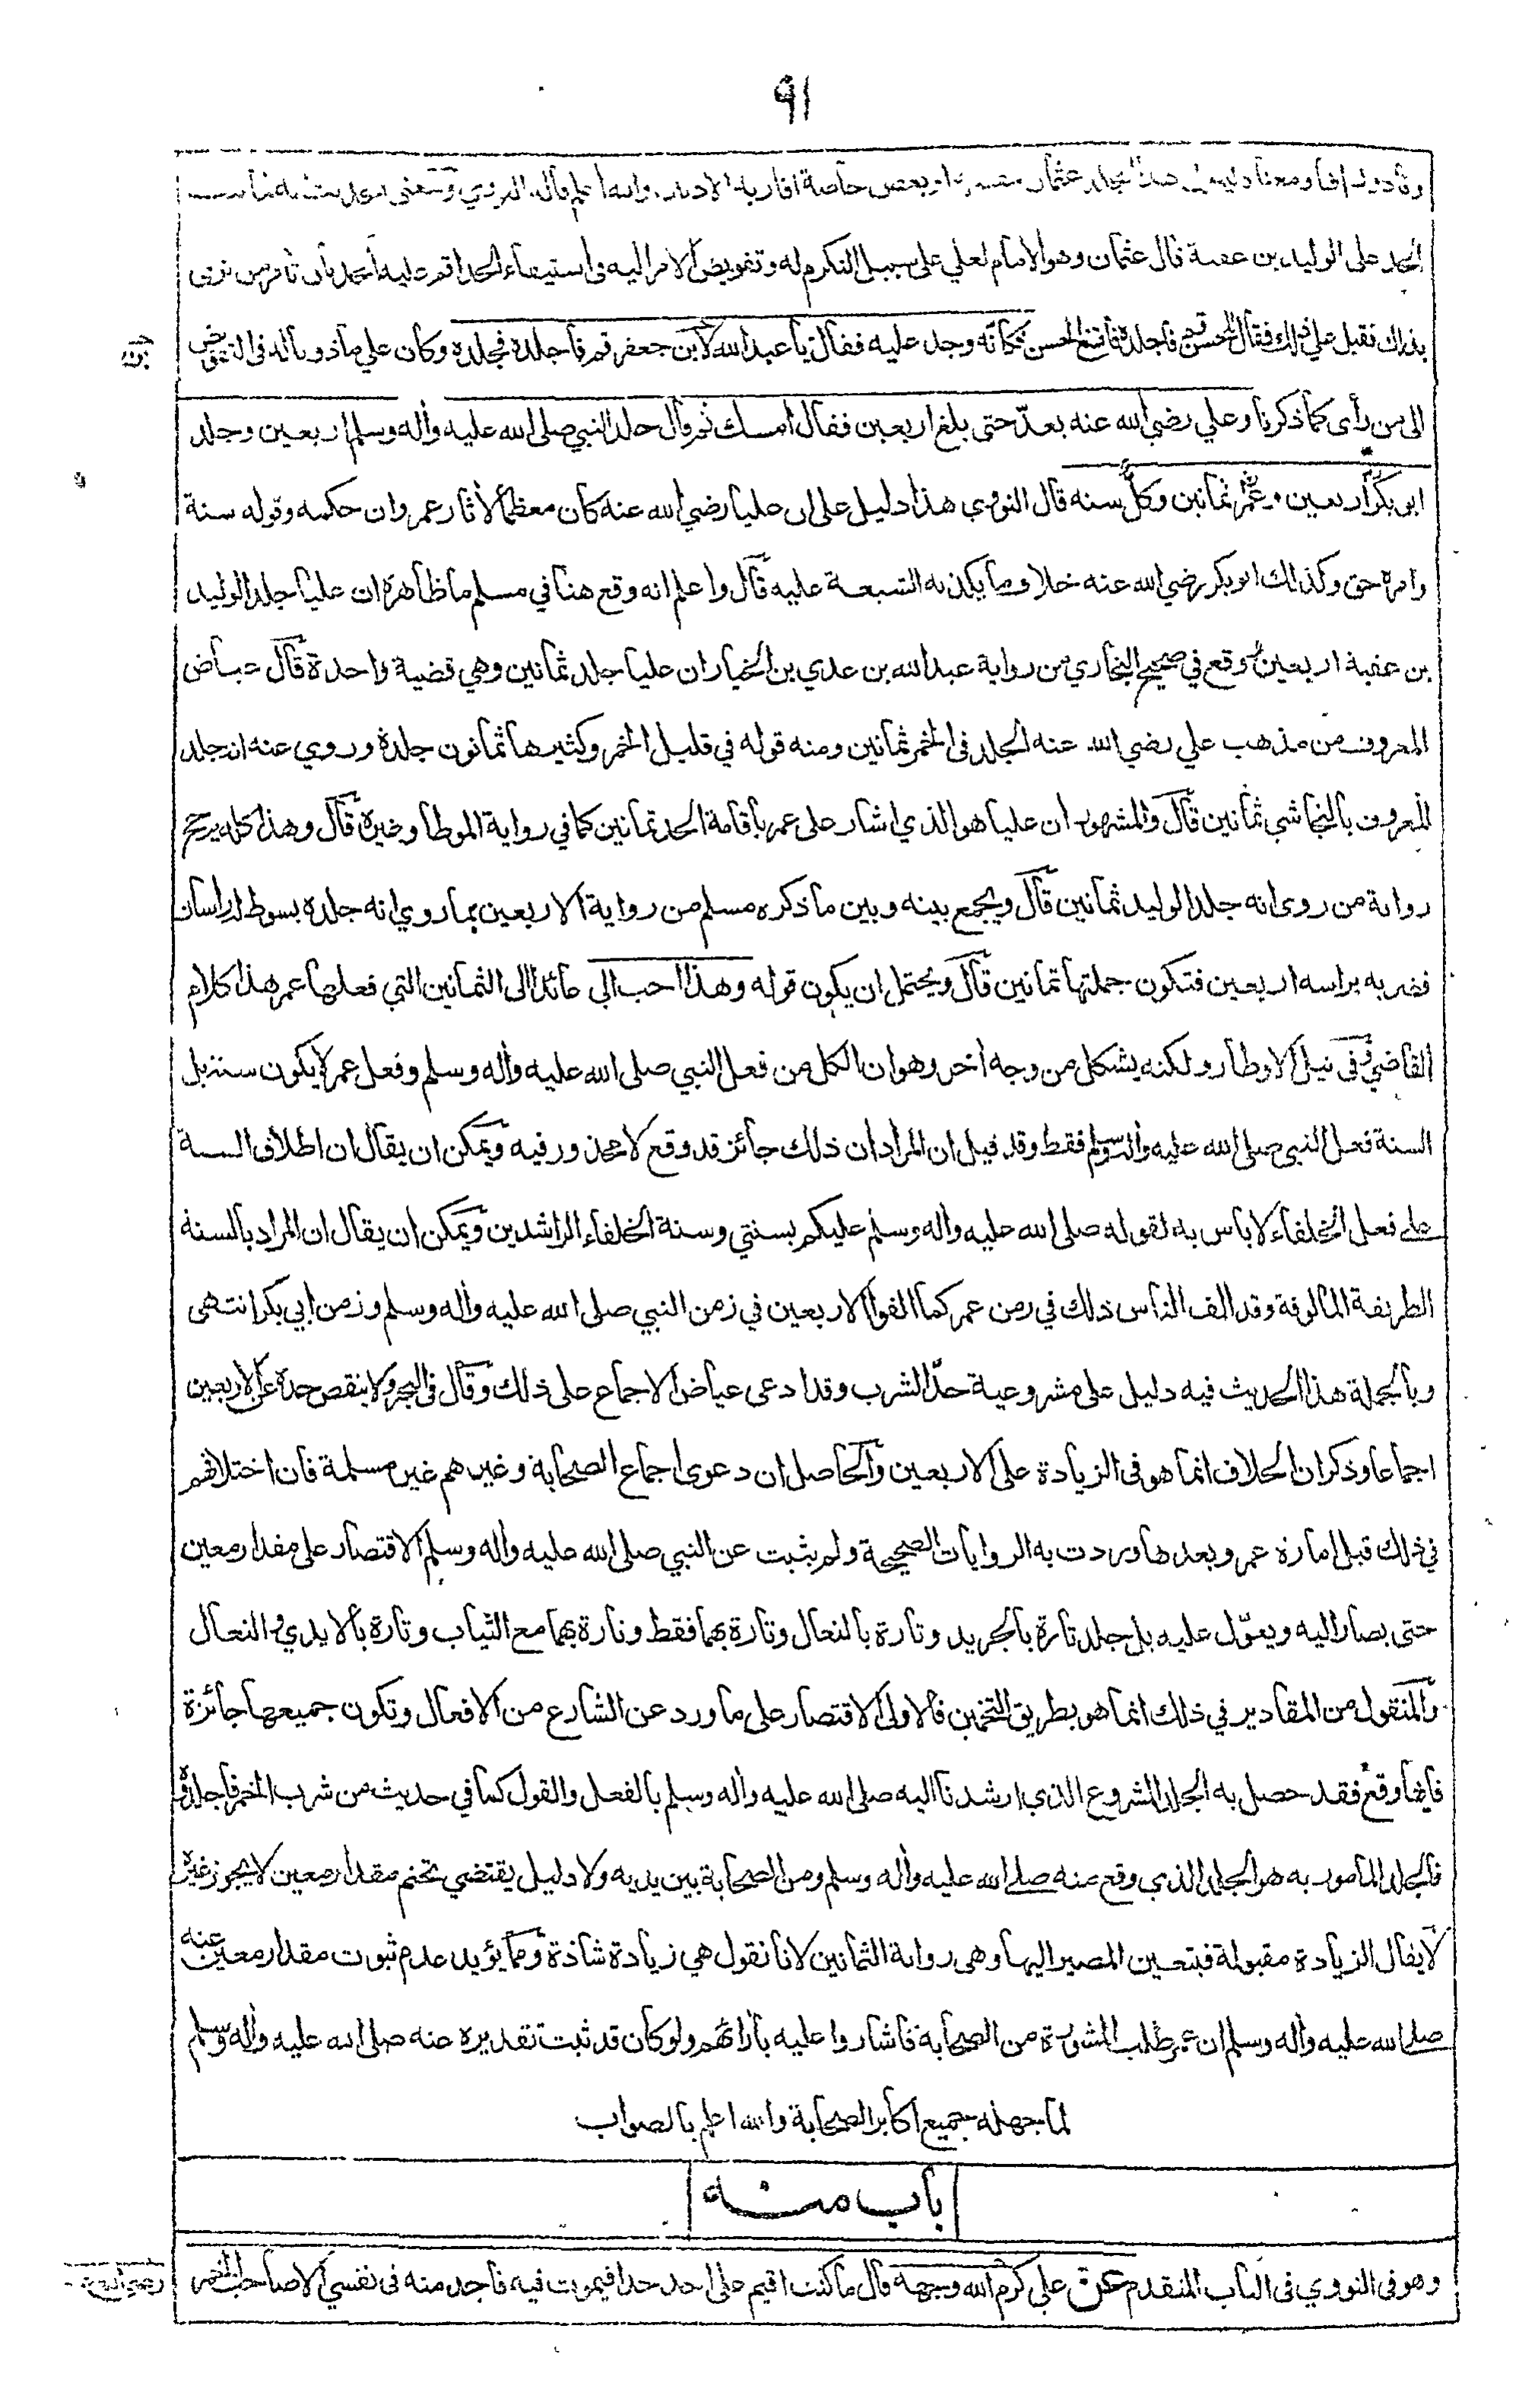 ٩١
الحد على الوليد بن عقبة قال عثمان وهو الامام لعلي على سبيل التكريم له وتفويض الامر اليه في استيفاء الحد اقم عليه الحد بان تامر من ترى
بذلك فقبل علي ذلك فقال للحسن قم فاجلده فامتنع الحسن فكانه وجد عليه فقال يا عبد الله لابن جعفر قم فاجلده فجلده وكان علي ماذونا له في التفويض
الى من رأى كما ذكرنا وعلي رضي الله عنه يعدّ حتى بلغ اربعين فقال امسك ثم قال جلد النبي صلى الله عليه وأله وسلم اربعين وجلد
ابو بكر اربعين وعمر ثمانين وكلّ سنة قال النووي هذا دليل على ان عليا رضي الله عنه كان معظما لأثار عمر وان حكمه وقوله سنة
وامره حق وكذلك ابو بكر رضي الله عنه خلاف ما يكذبه الشيعة عليه قال واعلم انه وقع هنا في مسلم ما ظاهره ان عليا جلد الوليد
بن عقبة اربعين ووقع في صحيح البخاري من رواية عبد الله بن عدي بن الخيار ان عليا جلد ثمانين وهي قضية واحدة قال عياض
المعروف من مذهب علي رضي الله عنه الجلد في الخمر ثمانين ومنه قوله في قليل الخمر وكثيرها ثمانون جلدة وروي عنه انه جلد
المعروف بالنجاشي ثمانين قال والمشهور ان عليا هو الذي اشار على عمر باقامة الحد ثمانين كما في رواية الموطا وغيره قال وهذا كله يرجح
رواية من روى انه جلد الوليد ثمانين قال ويجمع بينه وبين ما ذكره مسلم من رواية الاربعين بما روي انه جلده بسوط له راسان
فضربه براسه اربعين فتكون جملتها ثمانين قال ويحتمل ان يكون قوله وهذا احب الي عائدا الى الثمانين التي فعلها عمر هذا كلام
القاضي وفي نيل الاوطار ولكنه يشكل من وجه أخر وهو ان الكل من فعل النبي صلى الله عليه وأله وسلم وفعل عمر لا يكون سنة بل
السنة فعل النبي صلى الله عليه وأله وسلم فقط وقد قيل ان المراد ان ذلك جائز قد وقع لا محذور فيه ويمكن ان يقال ان اطلاق السنة
على فعل الخلفاء لا باس به لقوله صلى الله عليه وأله وسلم عليكم بسنتي وسنة الخلفاء الراشدين ويمكن ان يقال ان المراد بالسنة
الطريقة المالوفة وقد الف الناس ذلك في زمن عمر كما الفوا الاربعين في زمن النبي صلى الله عليه وأله وسلم وزمن ابي بكر انتهى
وبالجملة هذا الحديث فيه دليل على مشروعية حدّ الشرب وقد ادعى عياض الاجماع على ذلك وقال في البحر ولا ينقص حده عن الاربعين
اجماعا وذكر ان الخلاف انما هو في الزيادة على الاربعين والحاصل ان دعوى اجماع الصحابة وغيرهم غير مسلمة فان اختلافهم
في ذلك قبل امارة عمر وبعدها وردت به الروايات الصحيحة ولم يثبت عن النبي صلى الله عليه وأله وسلم الاقتصار على مقدار معين
حتى يصار اليه ويعوّل عليه بل جلد تارة بالجريد وتارة بالنعال وتارة بهما فقط وتارة بهما مع الثياب وتارة بالايدي والنعال
والمنقول من المقادير في ذلك انما هو بطريق التخمين فالاولى الاقتصار على ما ورد عن الشارع من الافعال وتكون جميعها جائزة
فايها وقع فقد حصل به الجلد المشروع الذي ارشدنا اليه صلى الله عليه وأله وسلم بالفعل والقول كما في حديث من شرب الخمر فاجلدوه
فالجلد المامور به هو الجلد الذي وقع منه صلى الله عليه وأله وسلم ومن الصحابة بين يديه ولا دليل يقتضي تحتم مقدار معين لا يجوز غيره
لا يقال الزيادة مقبولة فيتعين المصير اليها وهي رواية الثمانين لانا نقول هي زيادة شاذة ومما يؤيد عدم ثبوت مقدار معين عنه
صلى الله عليه وأله وسلم ان عمر طلب المشورة من الصحابة فاشاروا عليه بأرائهم ولو كان قد ثبت تقديره عنه صلى الله عليه وأله وسلم
لما جهله جميع اكابر الصحابة والله اعلم بالصواب
باب منه
وهو في النووي في الباب المتقدم عن علي كرم الله وجهه قال ما كنت اقيم على احد حدا فيموت فيه فاجد منه في نفسي الا صاحب الخمر